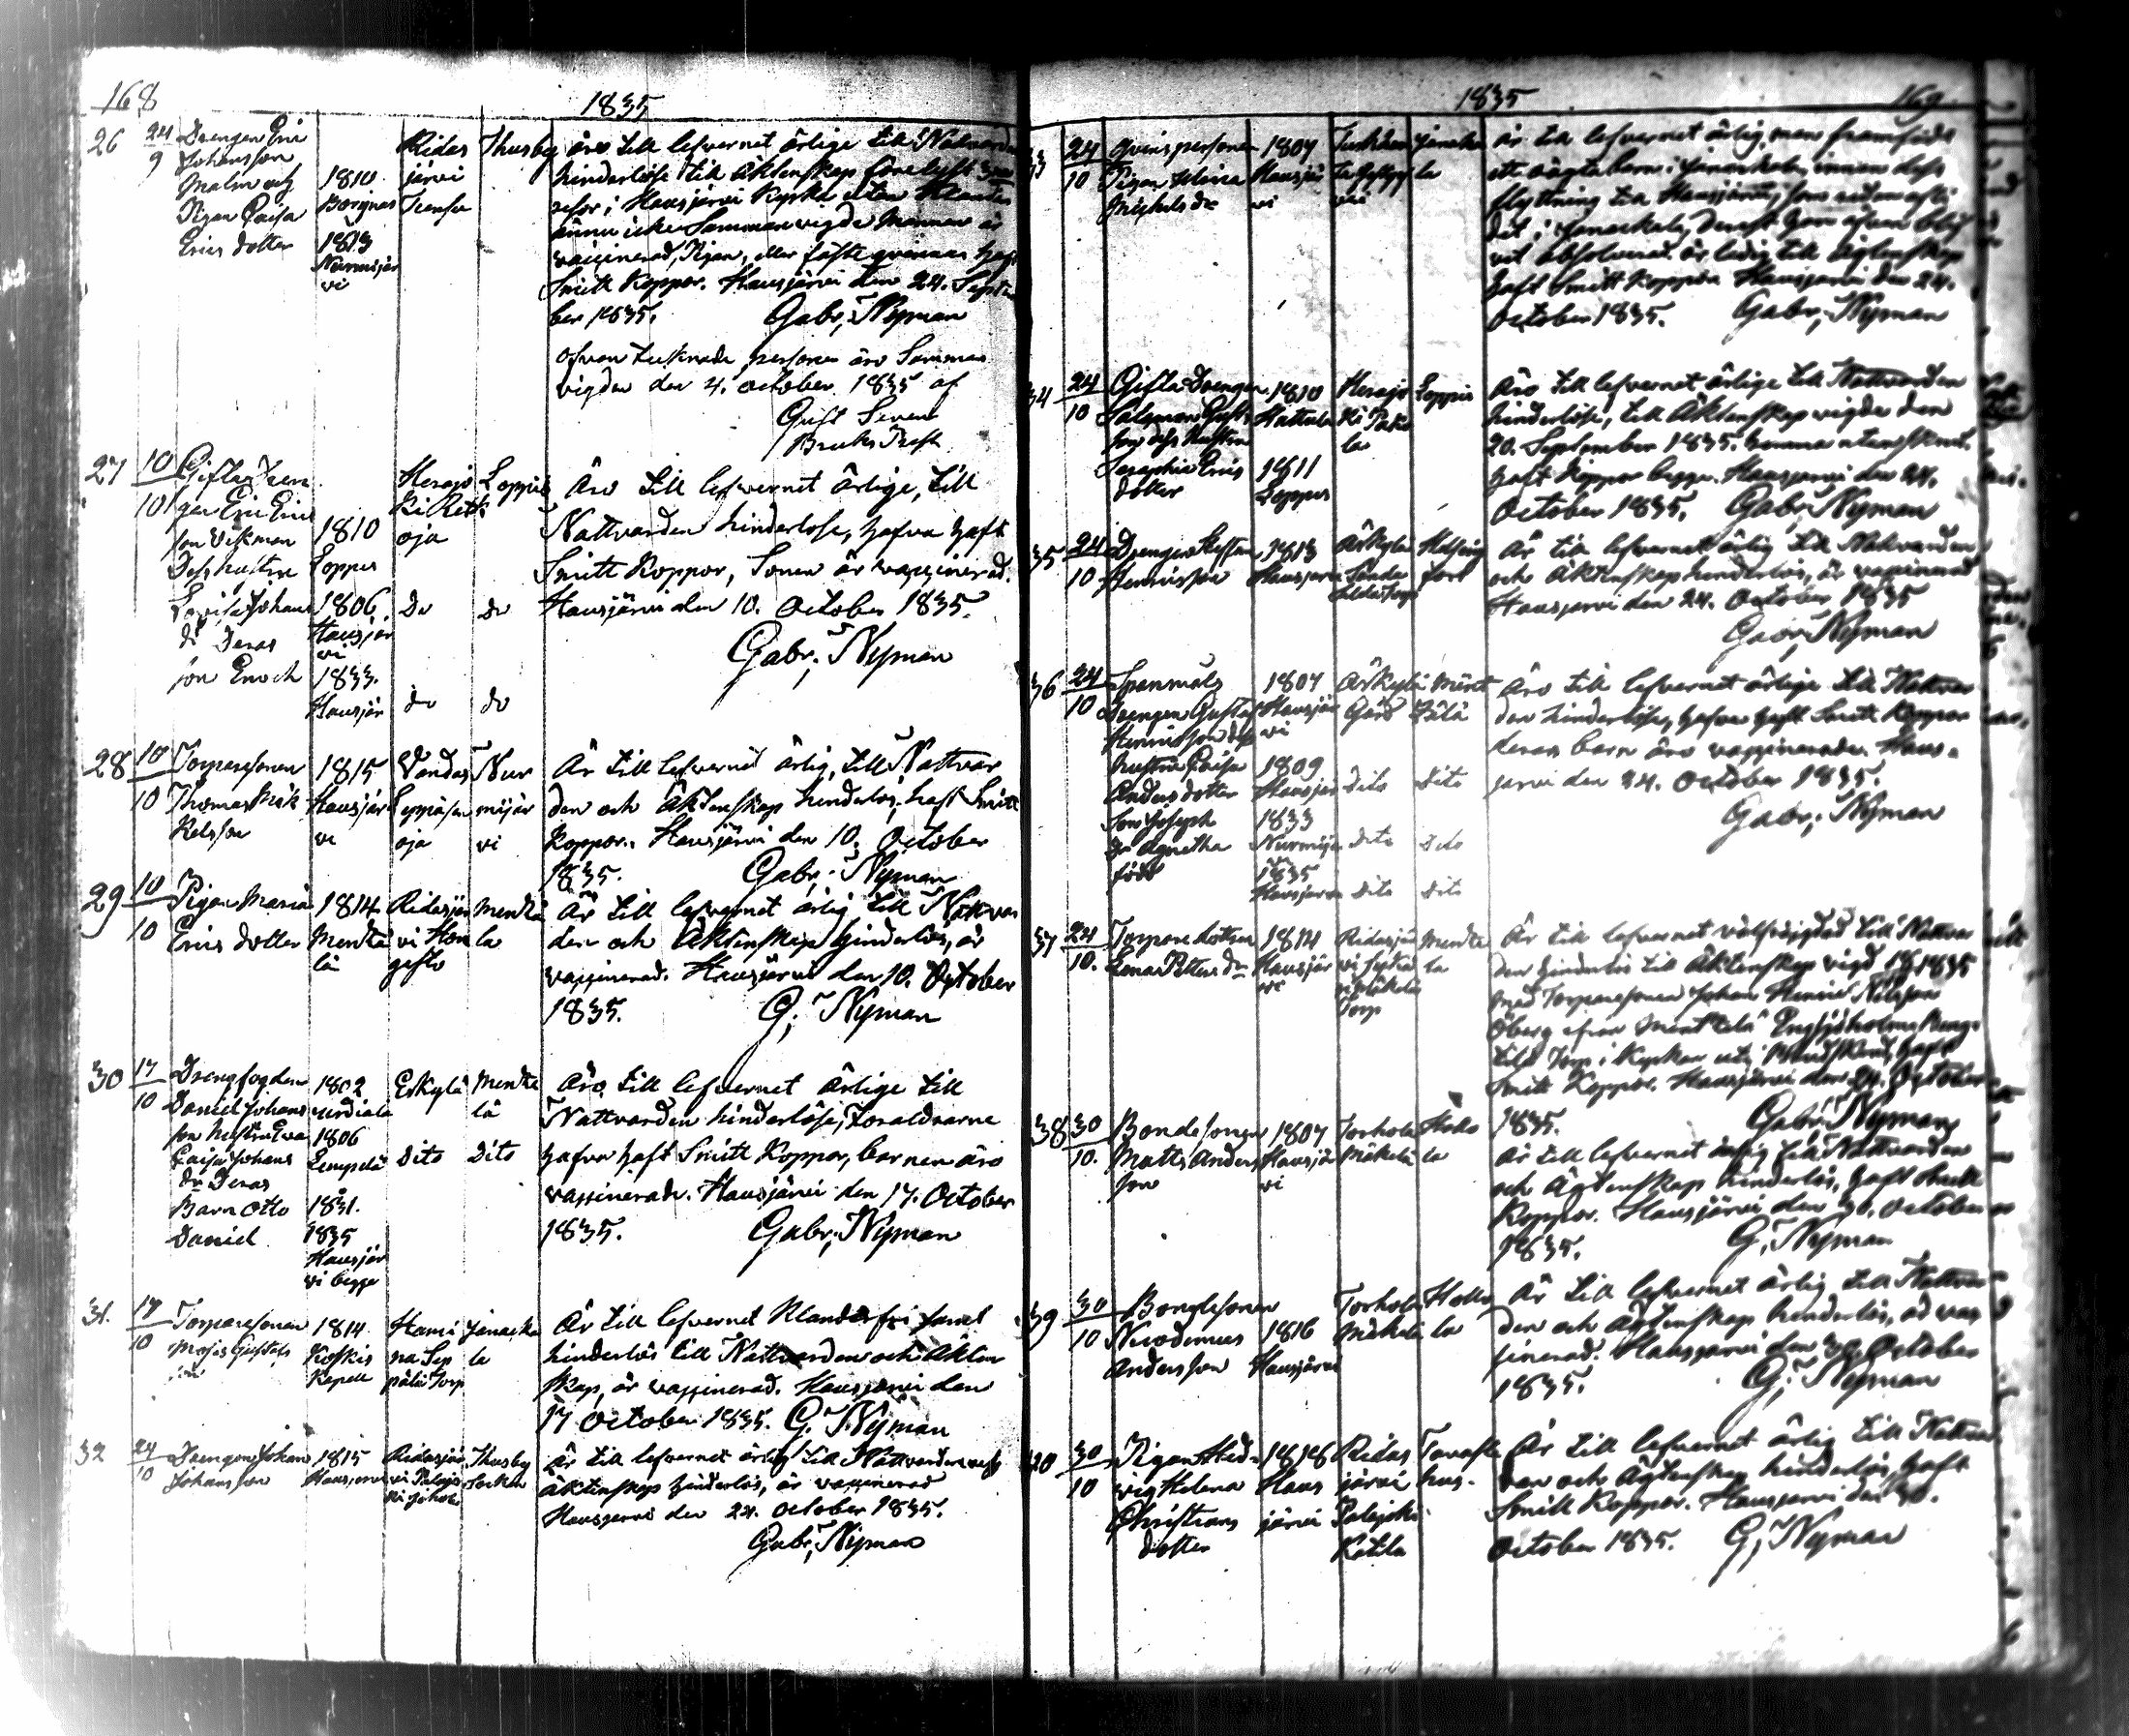 168
1835
26 24/9 Drengen Eric
Johansson
Malm och
Pigan Caisa
Erics dotter
1810
Borgnäs
1813
Nurmijär
vi
Ridas
järvi
Thusby
äro till lefvernet ärlige till Nattvarden
hinderlöse till Äktenskap
i Hausjärvi Kyrka utan klander
ännu icke Sammanvigde Mannen är
vaccinerad, Pigan, eller fäste qvinnan haft
Smitt Koppor. Hausjärvi den 24. Septem
ber 1835. Gabr; Nyman
Ofvan tecknade personer äro Samman
vigde den 4. October 1835 af
Gust
Bruks
27 10/10 Gifta Dren
gen Eric Eric
son Vikman
Dess hustru
Lovisa Johans
dr Deras
son Enoch
1810
Loppis
1806
Hausjär
vi
1833.
Hausjär
Herajo
ki
oja
do
do
Loppis
do
do
Äro till lefvernet ärlige, till
Nattvarden hinderlöse, hafva haft
Smitt Koppor, Sonen är vaccinerad.
Hausjärvi den 10. October 1835.
Gabr; Nyman
28 10/10 Torparesonen
Thomas Mik
kelsson
1815
Hausjär
vi
Vandas
Leppäsen
oja
Nur
mijär
vi
Är till lefvernet ärlig, till Nattvar
den och Äktenskap hinderlös, haft Smitt
Koppor. Hausjärvi den 10. October
1835. Gabr; Nyman
29 10/10 Pigan Maria
Erics dotter
1814
Mentzä
lä
Ridasjär
vi Hon
gisto
Mentzä
la
Är till lefvernet ärlig till Nattvar
den och Äktenskap hinderlös, är
vaccinerad. Hausjärvi den 10. October
1835. G; Nyman
30 17/10 Drengfogden
Daniel Johans
son hustru Eva
Caisa Johans
dr Deras
Barn Otto
Daniel
1802
Urdiala
1806
Lempelä
1831.
1835
Hausjär
vi begge
Erkylä
Dito
Mentze
lä
Dito
Äro till lefvernet ärlige till
Nattvarden hinderlöse, Föräldrarne
hafva haft Smitt Koppor, barnen äro
vaccinerade. Hausjärvi den 17. October
1835. Gabr; Nyman
31. 17/10 Torparesonen
Mojis Gustafs
son
1814
Koskis
Kapell
Hami
na Sep
pälä Torp
Janacka
la
Är till lefvernet klanderfri samt
hinderlös till Nattvarden och Äkten
skap, är vaccinerad. Hausjärvi den
17 October 1835. G. Nyman
32 24/10 Drengen Johan
Johansson
1815
Hausjärvi
Ridasjär
vi
Thusby
Socken
Är till lefvernet ärlig till Nattvarden och
äktenskap hinderlös, är vaccinerad
Hausjärvi den 24. October 1835.
Gabr; Nyman
1835
169
33 24/10 Qvinspersonen
Pigan Maria
Michelsdr
1807
Hausjär
vi
Janacka
la
Är till lefvernet ärlig, men framfödt
ett oägta barn i Janackala, innan dess
flyttning till Hausjärvi, som sedan afli
dit i Janackala, derest hon äfven blif
vit absolverad, är ledig till Ägtenskap
haft Smitt Koppor Hausjärvi den 24.
October 1835. Gabr; Nyman
34 24/10 Gifta Drengen
Salomon Gust
son dess hustru
Seraphia Erics
dotter
1810
Hattula
1811
Loppis
Herajo
ki
la
Loppis
Äro till lefvernet ärlige till Nattvarden
hinderlöse, till Äktenskap vigde den
20. September 1835.
haft Koppor begge. Hausjärvi den 24.
October 1835. Gabr; Nyman
35 24/10 Drengen Staffan
Henricsson
1813
Hausjärvi
Erkylä
Helsing
fors
Är till lefvernet ärlig till Nattvarden
och Äktenskap hinderlös, är vaccinerad
Hausjärvi den 24. October 1835
Gabr; Nyman
36 24/10 Spanmåls
Drengen Gustaf
Henricsson dess
hustru Caisa
Anders dotter
Son Joseph
Dr Agnetha
född
1807
Hausjär
vi
1809
Hausjär
1833
Nurmijär
vi
1835
Hausjärvi
Erkylä
Gård
Dito
Dito
Dito
Ment
zälä
Dito
Dito
Dito
Äro till lefvernet ärlige till Nattvar
den hinderlöse, hafva haft Smitt Koppor
deras barn äro vaccinerade. Haus-
jarvi den 24. October 1835.
Gabr; Nyman
37 24/10. Torpare dottren
Lena Petters dr
1814
Hausjär
vi
Ridasjär
vi
Mäkelä
Torp
Mentze
la
Är till lefvernet välfräjdad till Nattvar
den hinderlös till Äktenskap vigd 1835
med Torparesonen Johan Henric Nilsson
Öberg ifrån Mentzelä
Torp i Kyrkan haft
Smitt Koppor. Hausjärvi den 24. October
1835. Gabr; Nyman
38 30/10. Bondesonen
Matts Anders
son
1807
Hausjär
vi
Torhola
Mäkelä
Hollo
la
Är till lefvernet ärlig till Nattvarden
och Ägtenskap hinderlös, haft Smitt
Koppor. Hausjärvi den 30. October
1835. G; Nyman
39 30/10 Bondesonen
Nicodemus
Andersson
1816
Hausjärvi
Torhola
Mäkelä
Hollo
la
Är till lefvernet ärlig till Nattvar
den och Ägtenskap hinderlös, är vac
cinerad. Hausjärvi den 30. October
1835. G; Nyman
40 30/10 Pigan Hed-
vig Helena
Christians
dotter
1818
Haus
järvi
Ridas
järvi
Palojoki
Kotila
Tavaste
hus.
Är till lefvernet ärlig till Nattvar
den och Ägtenskap hinderlös, haft
Smitt Koppor. Hausjärvi den 30.
October 1835. G; Nyman